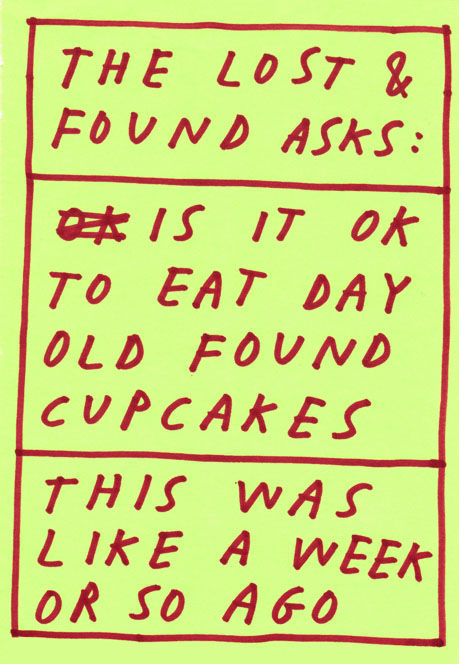 THE LOST &
FOUND ASKS:
IS IT OK
TO EAT DAY
OLD FOUND
CUPCAKES
THIS WAS
LIKE A WEEK
OR SO AGO